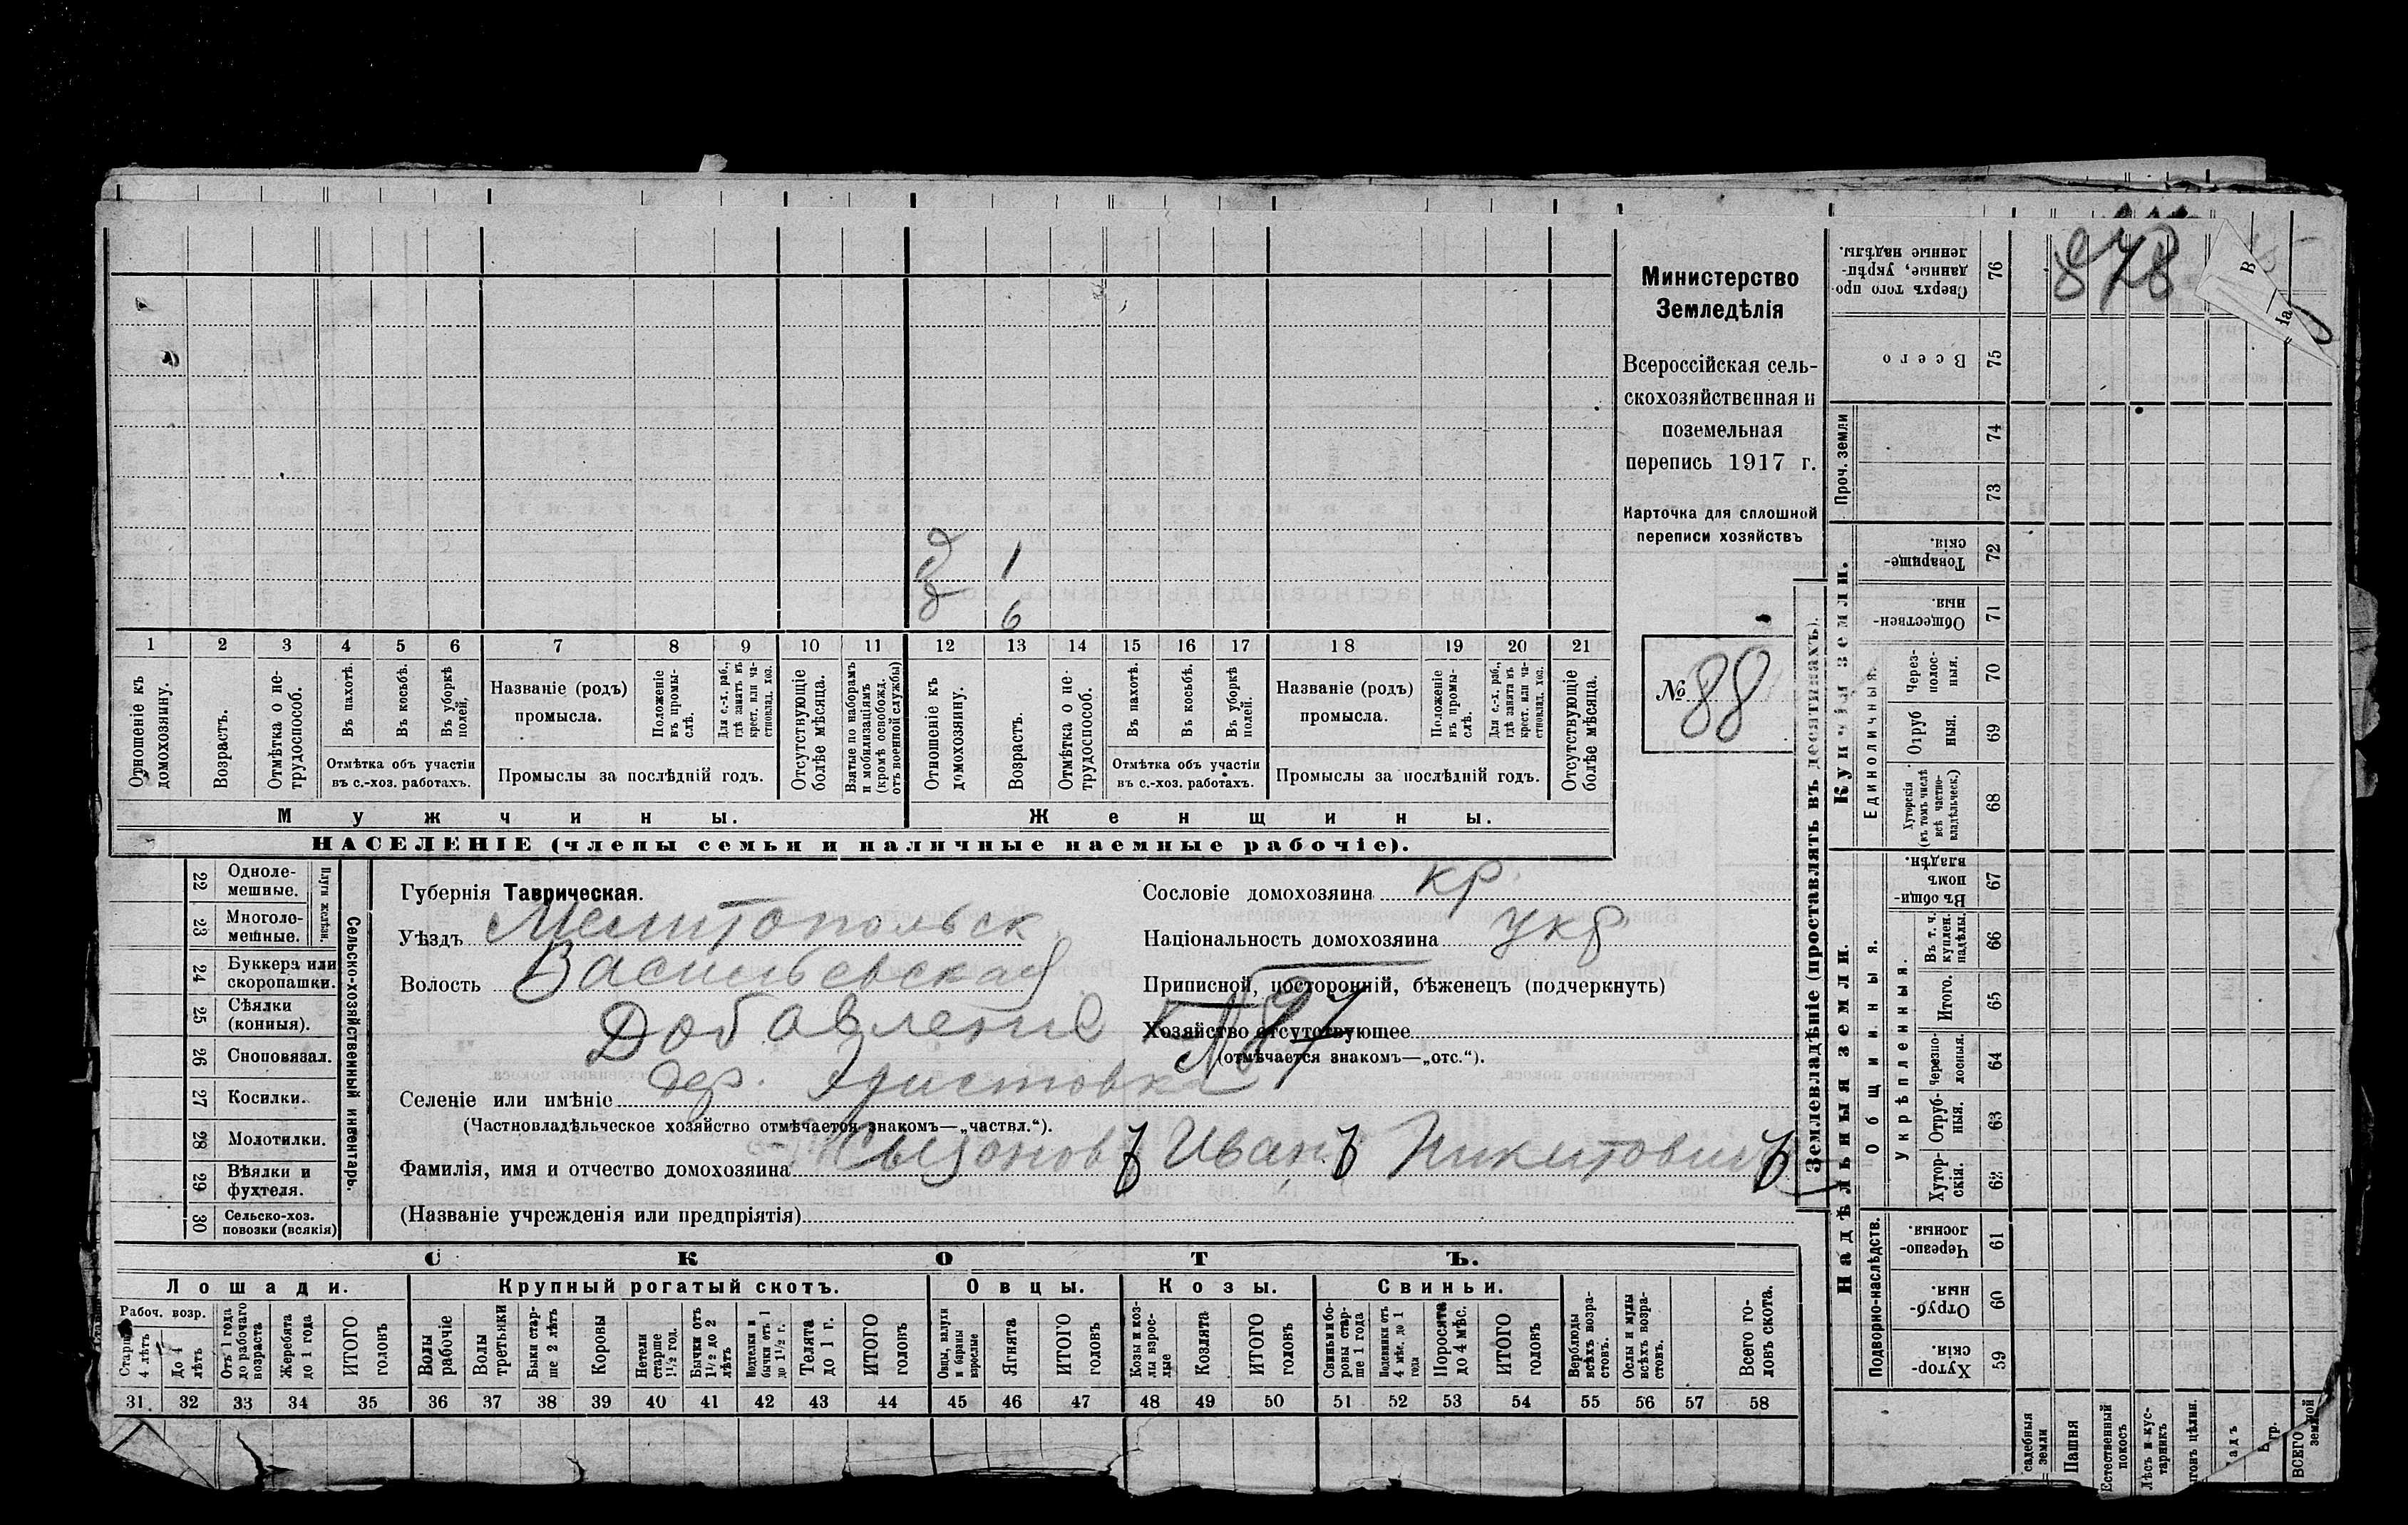 878
В
1а
Министерство
Земледѣлія
Всероссійская сель-
скохозяйственная и
поземельная
перепись 1917 г.
Карточка для сплошной
переписи хозяйствъ
№ 88
д 1
д 6
1 2 3 4 5 6 7 8 9 10 11 12 13 14 15 16 17 18 19 20 21
Отношеніе къ домохозяину.
Возрастъ.
Отмѣтка о не-трудоспособ.
Въ пахотѣ.
Въ косьбѣ.
Въ уборкѣ полей.
Отмѣтка объ участіи
въ с.-хоз. работахъ.
Названіе (родъ)
промысла.
Положеніе въ промы-слѣ.
Для с.-х. раб., гдѣ занятъ въ крест. или ча-стновлад. хоз.
Промыслы за послѣдній годъ.
Отсутствующіе болѣе мѣсяца.
Взятые по наборамъ и мобилизаціямъ (кромѣ освобожд. отъ военной службы)
Отношеніе къ домохозяину.
Возрастъ.
Отмѣтка о не-трудоспособ.
Въ пахотѣ.
Въ косьбѣ.
Въ уборкѣ полей.
Отмѣтка объ участіи
въ с.-хоз. работахъ.
Названіе (родъ)
промысла.
Положеніе въ промы-слѣ.
Для с.-х. раб., гдѣ занятъ въ крест. или ча-стновлад. хоз.
Промыслы за послѣдній годъ.
Отсутствующіе болѣе мѣсяца.
Мужчины.
Женщины.
НАСЕЛЕНІЕ (члены семьи и наличные наемные рабочіе).
22 Одноле-мешные.
23 Многоле-мешные.
Плуги желѣзн.
24 Буккера или скоропашки.
25 Сѣялки (конныя).
26 Сноповязал.
27 Косилки.
28 Молотилки.
29 Вѣялки и фухтеля.
30 Сельско-хоз. повозки (всякія)
Сельско-хозяйственный инвентарь.
Губернія Таврическая.
Уѣздъ Мелитопольск.
Волость Васильевская
Добавление к № 87
Селеніе или имѣніе дер.
(Частновладѣльческое хозяйство отмѣчается знакомъ—„частвл.“).
Фамилія, имя и отчество домохозяина Иванъ Никитовичъ
(Названіе учрежденія или предпріятія)
Сословіе домохозяина кр.
Національность домохозяина укр
Приписной, посторонній, бѣженецъ (подчеркнуть)
Хозяйство отсутствующее
(отмѣчается знакомъ—„отс.“).
СКОТЪ.
Лошади. Крупный рогатый скотъ. Овцы. Козы. Свиньи.
Рабоч. возр.
Старше 4 лѣтъ
До 4 лѣтъ
Отъ 1 года до рабочаго возраста
Жеребята до 1 года
ИТОГО головъ
Волы рабочіе
Волы третьяки
Быки стар-ше 2 лѣтъ
Коровы
Нетели старше 1½ год.
Бычки отъ 1½ до 2 лѣтъ
бычки отъ 1 до 1½ г.
Телята до 1 г.
ИТОГО головъ
Овцы, валухи и бараны взрослые
Ягнята
ИТОГО головъ
Козы и коз-лы взрос-лые
Козлята
ИТОГО головъ
Свиньи и бо-ровы стар-ше 1 года
Подсвинки отъ 4 мѣс. до 1 года
Поросята до 4 мѣс.
ИТОГО головъ
Верблюды всѣхъ возра-стовъ.
Ослы и мулы всѣхъ возра-стовъ.
Всего го-ловъ скота.
31 32 33 34 35 36 37 38 39 40 41 42 43 44 45 46 47 48 49 50 51 52 53 54 55 56 57 58
Землевладѣніе (проставлять въ десятинахъ).
Купчія земли.
Надѣльныя земли.
Проч. земли
Единоличныя.
Общинныя.
Укрѣпленныя.
Подворно-наслѣдств.
76 Сверхъ того про-данные, укрѣп-ленные надѣлы.
75 Всего
74
73
72 Товарище-скія.
71 Обществен-ныя.
70 Через-полос-ныя.
69 Отруб ныя.
68 Хуторскія (въ томъ числѣ всѣ частно-владѣльческ.)
67 Въ общин-номъ владѣн.
66 Въ т. ч. куплен. надѣлы.
65 Итого.
64 Черезпо-лосныя.
63 Отруб-ныя.
62 Хутор-скія.
61 Черезпо-лосныя.
60 Отруб-ныя.
59 Хутор-скія.
садебныя земли
Пашня
Естественный покосъ
Лѣсъ и кус-тарникъ
ыгонъ цѣлин.
адъ
гр.
ВСЕГО земной